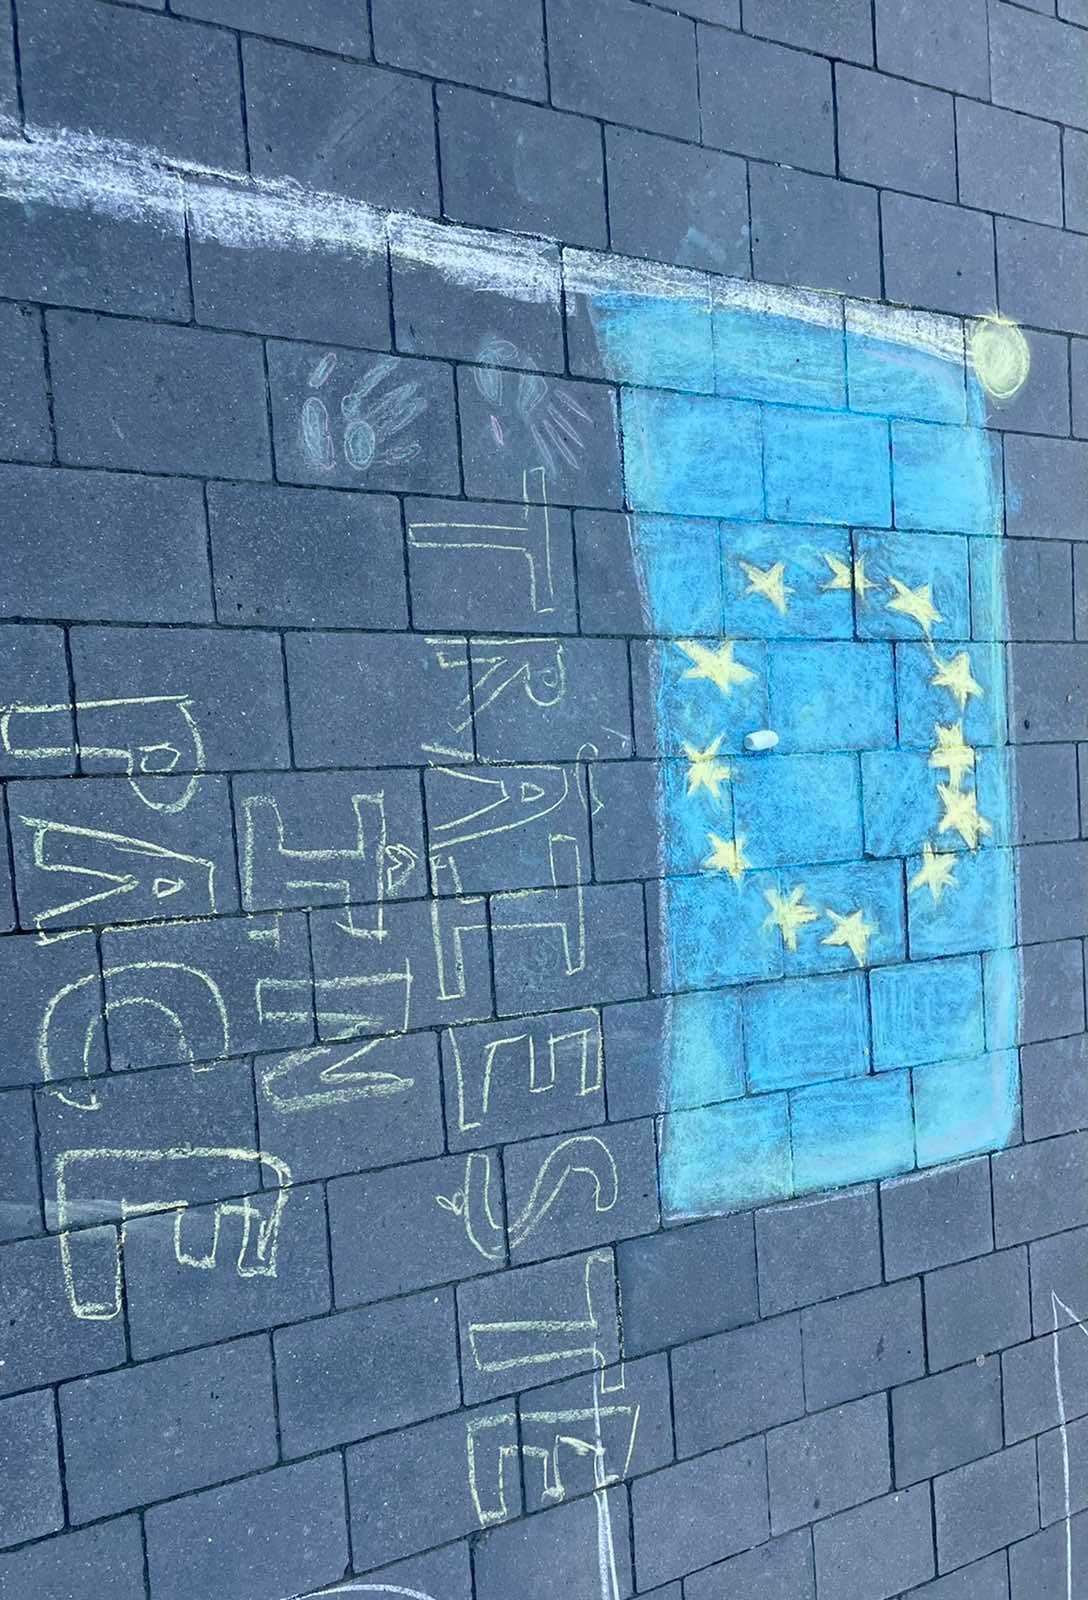 TRĂIEȘTE
ÎN
PACE